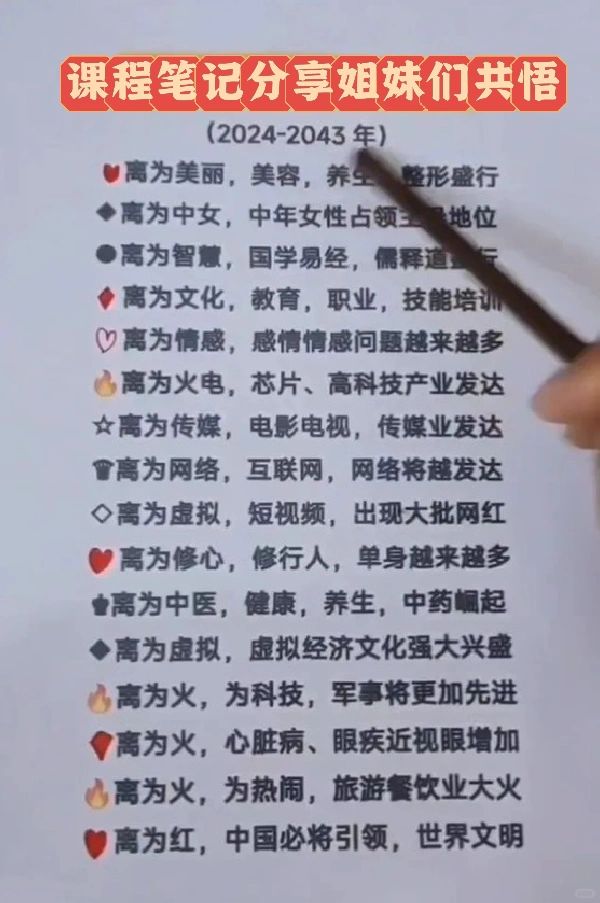 课程笔记分享姐妹们共悟
（2024-2043 年）
离为美丽，美容，养生 整形盛行
离为中女，中年女性占领主 地位
离为智慧，国学易经，儒释道 行
离为文化，教育，职业，技能培训
离为情感，感情情感问题越来越多
离为火电，芯片、高科技产业发达
☆离为传媒，电影电视，传媒业发达
♛离为网络，互联网，网络将越发达
◇离为虚拟，短视频，出现大批网红
离为修心，修行人，单身越来越多
离为中医，健康，养生，中药崛起
◆离为虚拟，虚拟经济文化强大兴盛
离为火，为科技，军事将更加先进
离为火，心脏病、眼疾近视眼增加
离为火，为热闹，旅游餐饮业大火
离为红，中国必将引领，世界文明